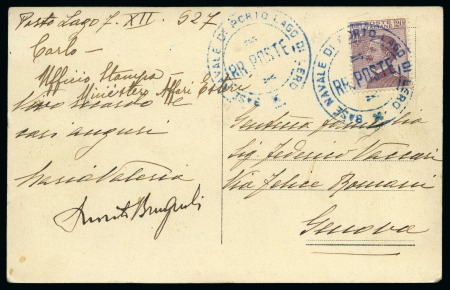 Porto Lago 7. XII. 927
Carlo —
Ufficio Stampa
Ministero Affari Esteri
Vivo ricordo e
cari auguri
BASE NAVALE DI PORTO LAGO DI LERO
RR. POSTE
BASE NAVALE DI PORTO LAGO DI LERO
RR. POSTE
famiglia
Sig. Federico Vaccari
Via Felice Romani
Genova